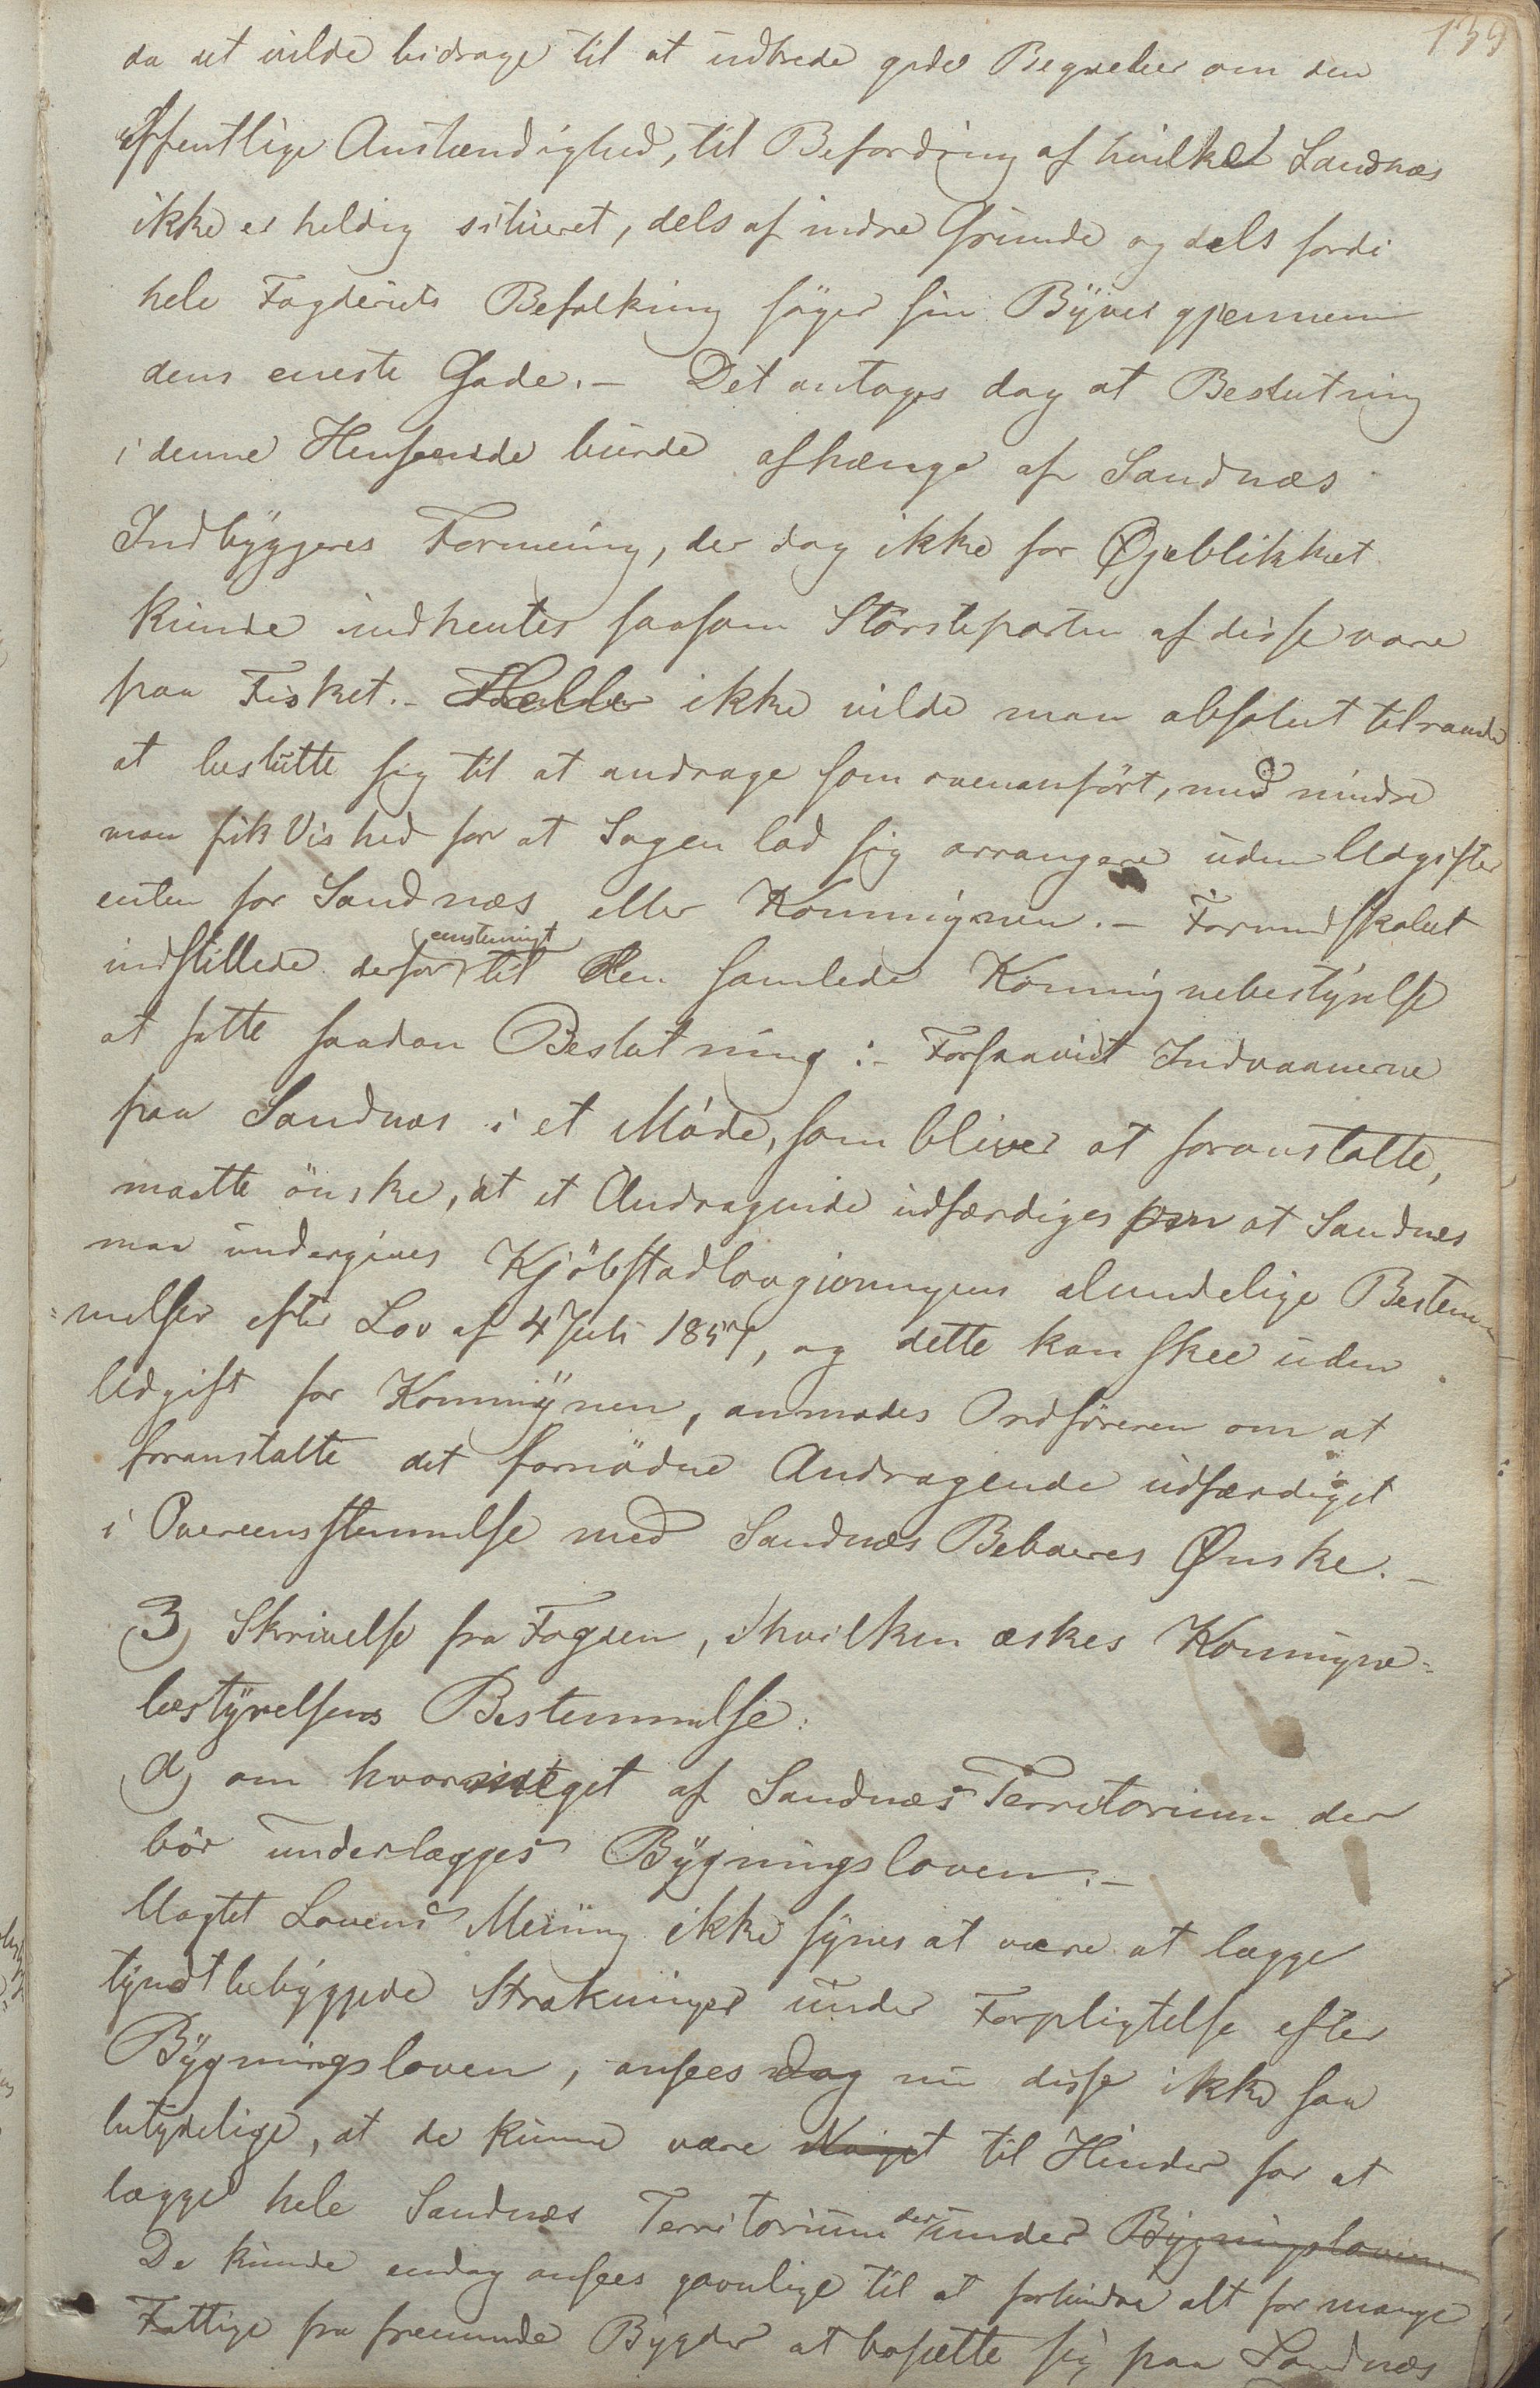 139
da det vilde bidrage til at udbrede gode Begreber om den
offentlige Anstændighed, til Befordring af hvilket Sandnæs
ikke er heldig situeret, dels af indre Grunde og dels fordi
hele Fogderiets Befolkning søger sin Byvei gjennem
dens eneste Gade. – Det antages dog at Beslutning
i denne Henseende burde afhænge af Sandnæs
Indbyggeres Formening, der dog ikke for Øjeblikket
kunde indhentes saasom Störsteparten af disse vare
paa Fisket. – Heller ikke vilde man absolut tilraade
at beslutte sig til at andrage som ovenanfört, med mindre
man fik Vished for at Sagen lod sig arrangere uden Udgifter
enten for Sandnæs eller Kommunen. – Formandskabet
indstillede derfor enstemmigt til den samlede Kommunebestyrelse
at fatte saadan Beslutning: – Forsaavidt Indvaanerne
paa Sandnæs i et Möde, som bliver at foranstalte,
maatte önske, at et Andragende udfærdiges paa at Sandnæs
maa undergives Kjöbstadlovgivningens almindelige Bestem-
=melser efter Lov af 4 Juli 1857, og dette kan skee uden
Udgift for Kommunen, anmodes Ordföreren om at
foranstalte det fornödne Andragende udfærdiget
i Overeensstemmelse med Sandnæs Beboeres Ønske. –
3) Skrivelse fra Fogden, i hvilken æskes Kommune=
bestyrelsens Bestemmelse:
a) om hvormeget af Sandnæs Territorium der
bör underlægges Bygningsloven. –
Uagtet Lovens Mening ikke synes at være at lægge
tyndtbebyggede Strækninger under Forpligtelse efter
Bygningsloven, ansees dog nu disse ikke saa
betydelige, at de kunne være Noget til Hinder for at
lægge hele Sandnæs Territorium derunder Bygningsloven.
De kunde endog ansees gavnlige til at forhindre alt for mange
Fattige fra fremmede Bygder at bosætte sig paa Sandnæs